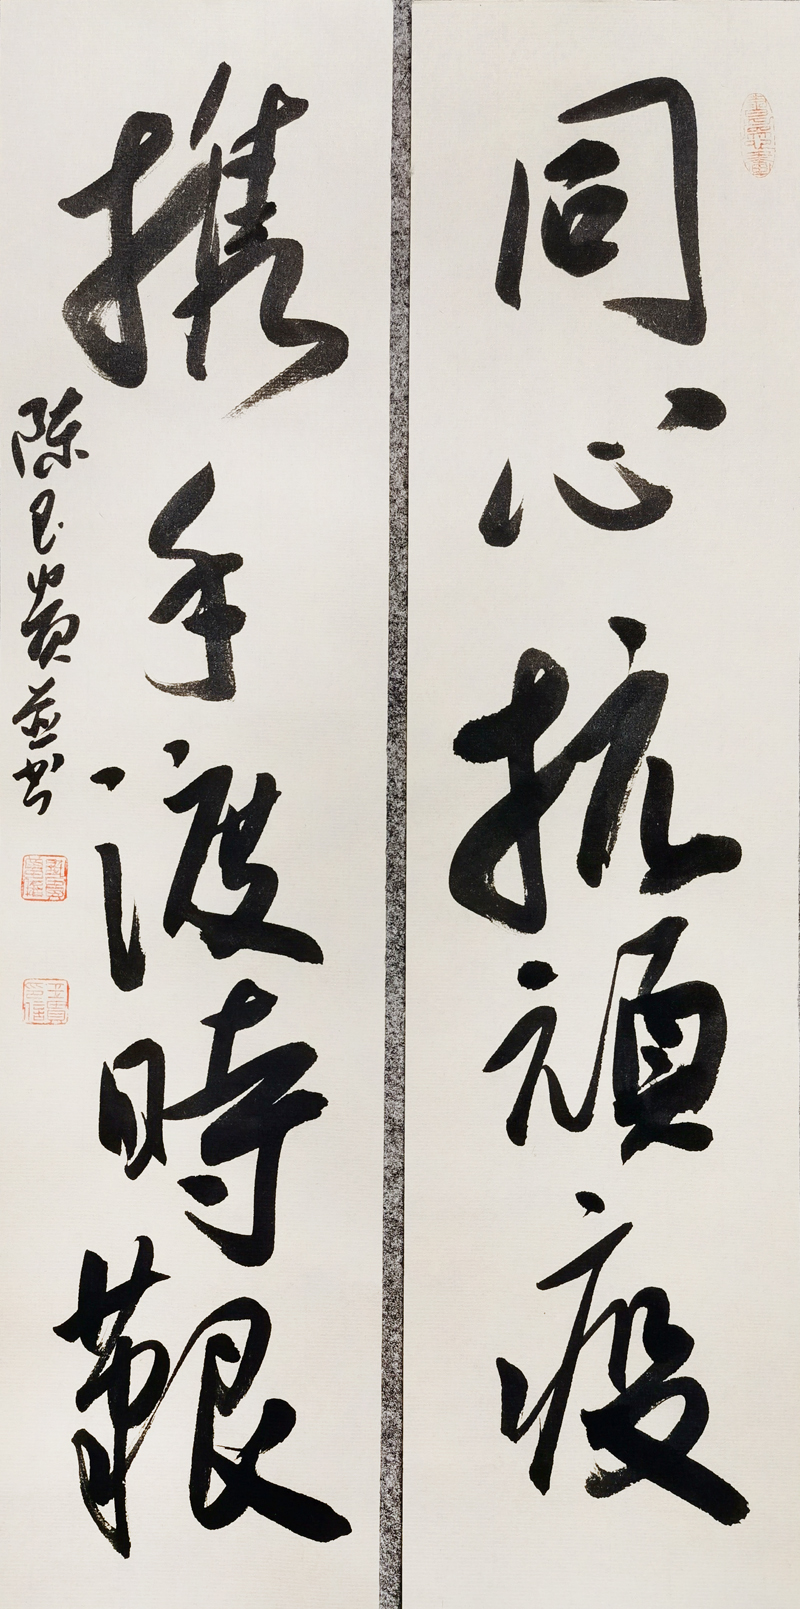 同心抗頑疫
携手渡時艱
陈玉贵並书